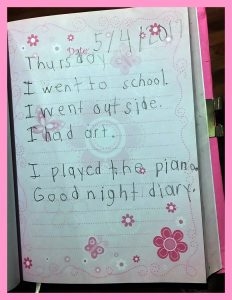 Date 5/4/2017
Thursday
I went to school.
I went outside.
I had art.
I played the piano.
Good night diary.